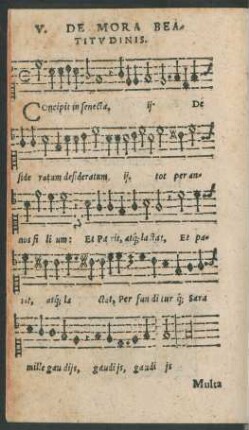 V. DE MORA BEA-
TITVDINIS.
Concipit in senecta, ij. De
side ratam desideratum, ij, tot per an-
nos fi li um: Et Parit, atq; lactat, Et pa-
rit, atq; la ctat, Per fun di tur q; Sara
mille gau dijs, gaudijs, gaudi js
Multa